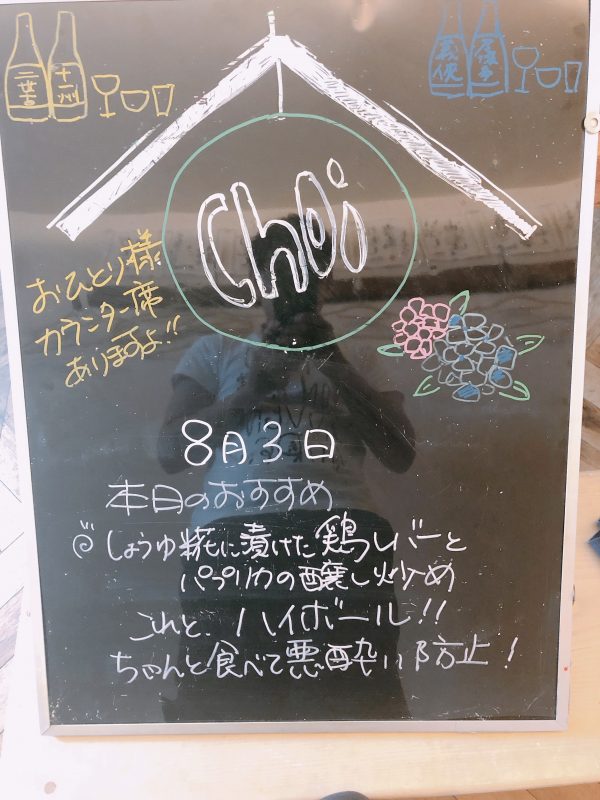 二葉
十一州
義侠
Choi
おひとり様
カウンター席
ありますよ!!
8月3日
本日のおすすめ
しょうゆ糀に漬けた鶏レバーと
パプリカの醸し炒め
これと、ハイボール!!
ちゃんと食べて悪酔い防止!